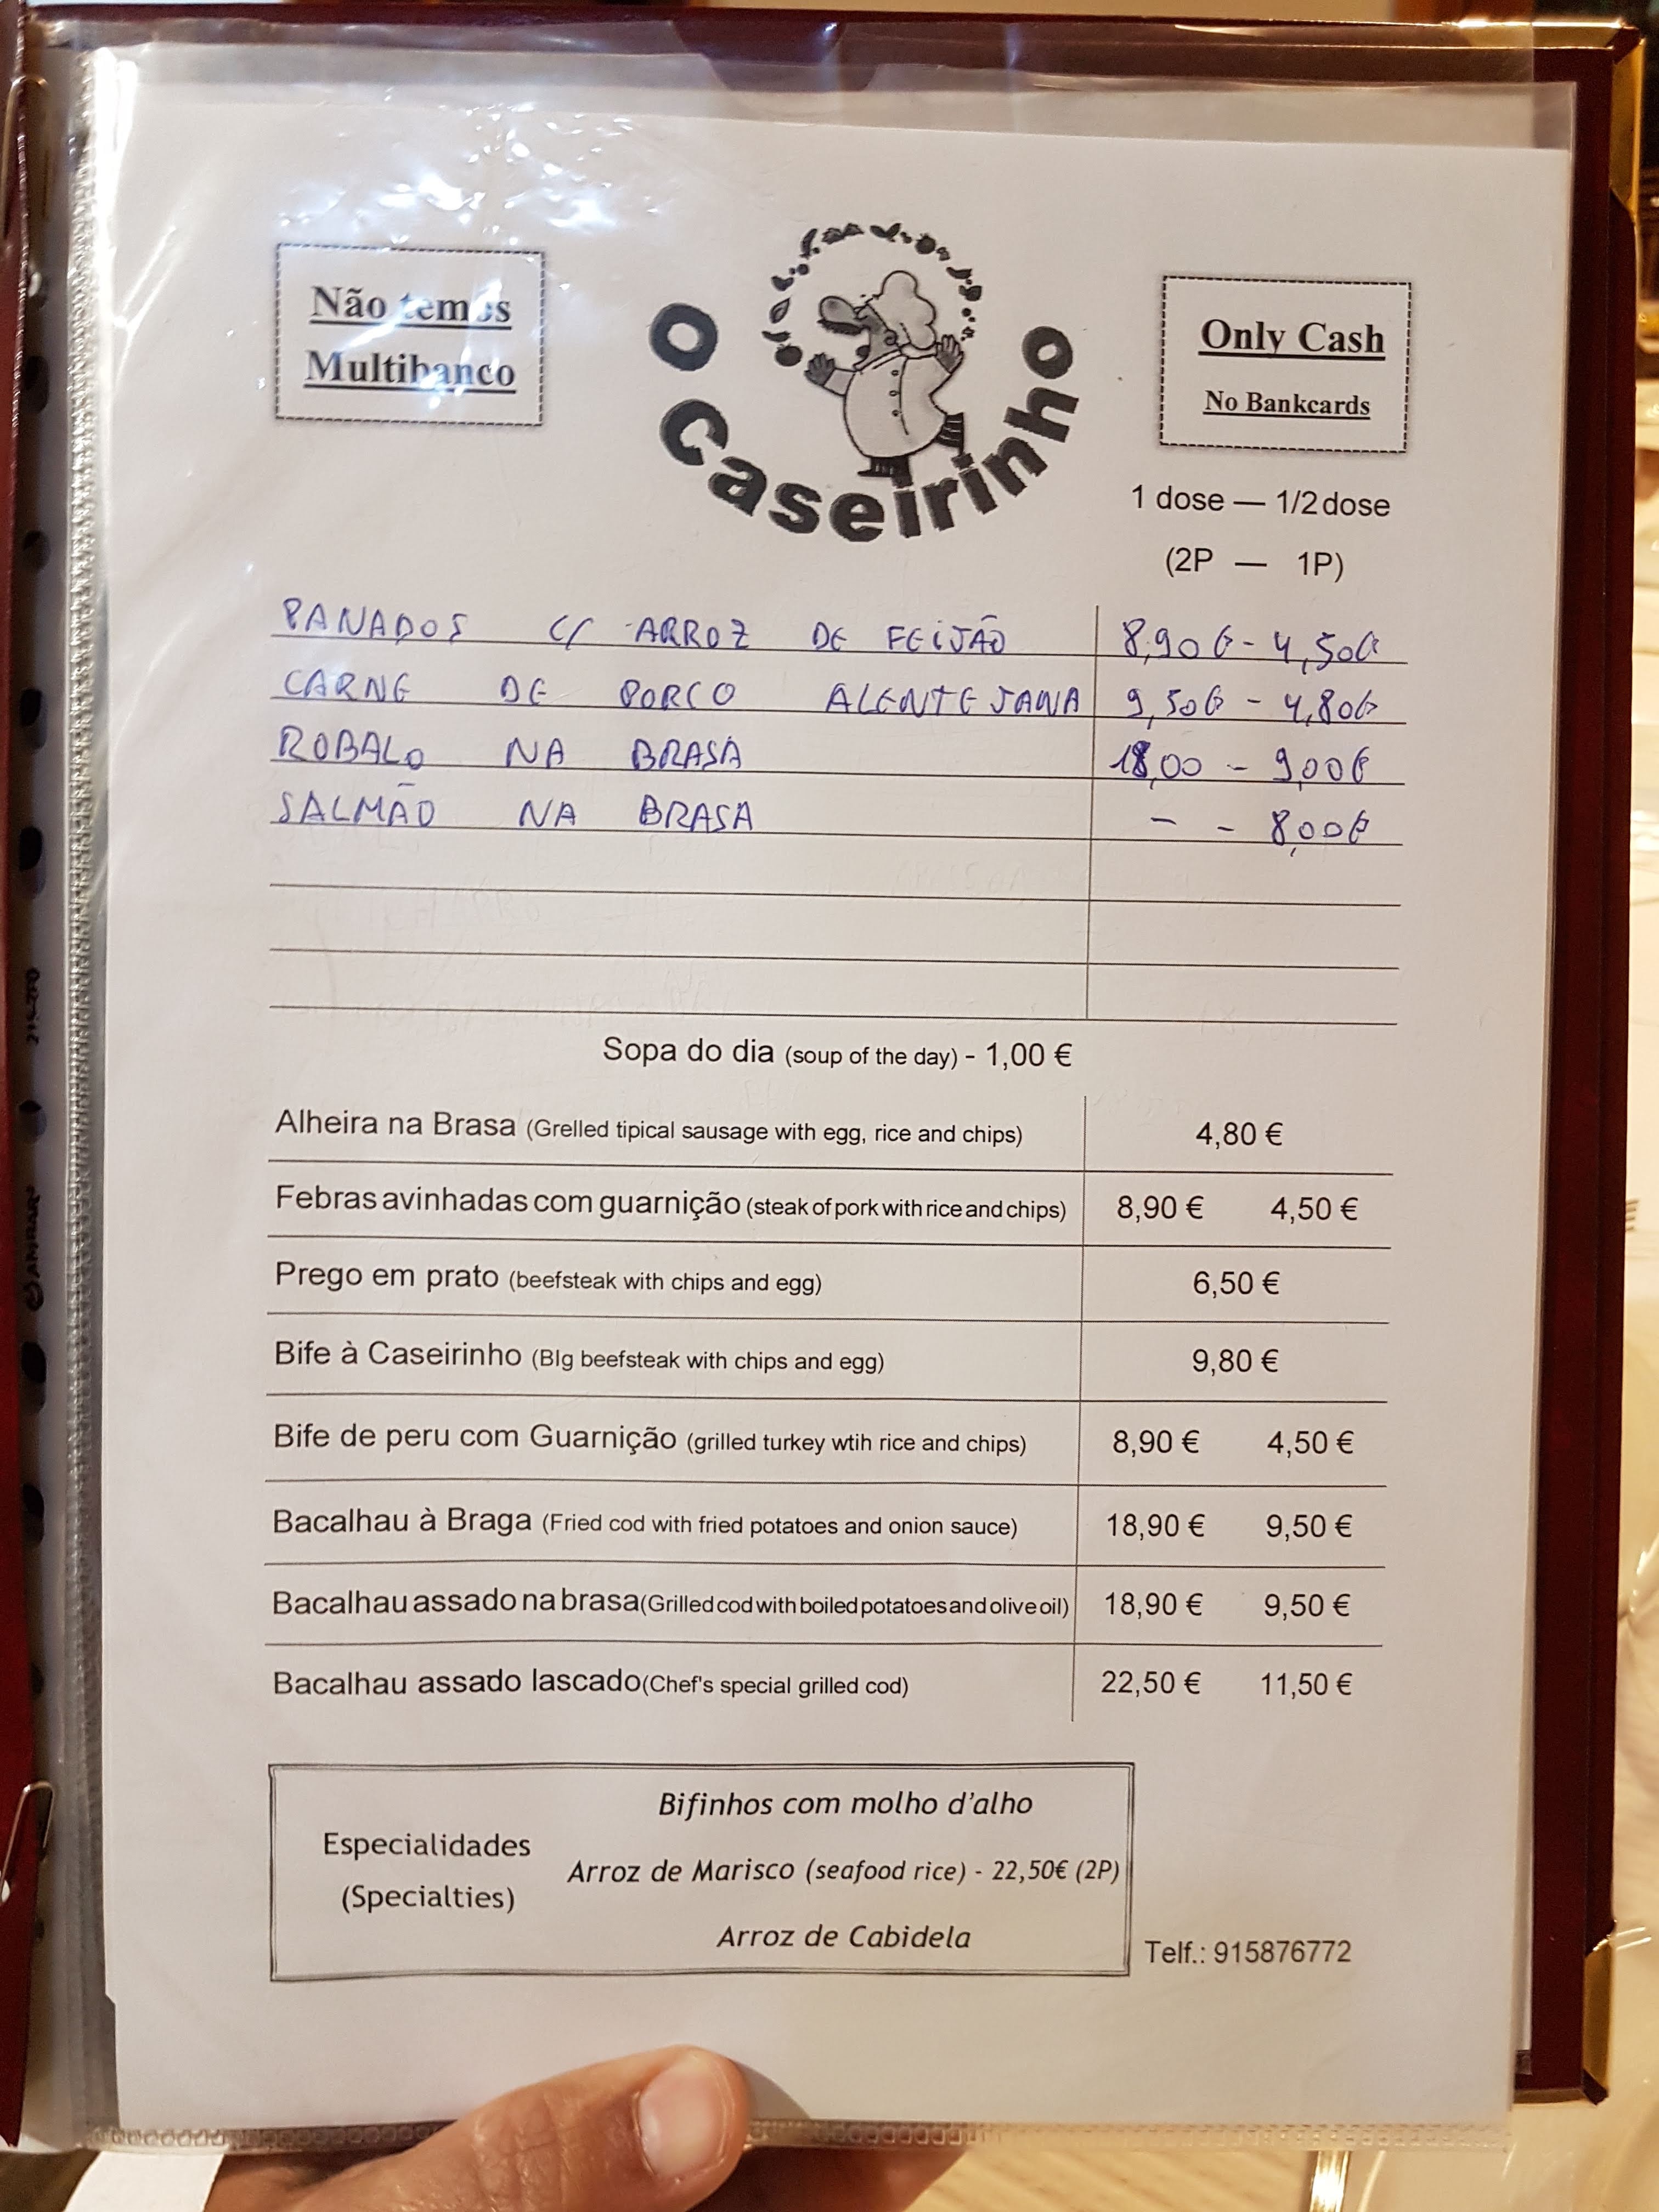 Não temos
Multibanco
O Caseirinho
Only Cash
No Bankcards
1 dose — 1/2 dose
(2P — 1P)
PANADOS C/ ARROZ DE FEIJÃO 8,90€ - 4,50€
CARNE DE PORCO ALENTEJANA 9,50€ - 4,80€
ROBALO NA BRASA 18,00 - 9,00€
SALMÃO NA BRASA - - 8,00€
Sopa do dia (soup of the day) - 1,00 €
Alheira na Brasa (Grelled tipical sausage with egg, rice and chips) 4,80 €
Febras avinhadas com guarnição (steak of pork with rice and chips) 8,90 € 4,50 €
Prego em prato (beefsteak with chips and egg) 6,50 €
Bife à Caseirinho (BIg beefsteak with chips and egg) 9,80 €
Bife de peru com Guarnição (grilled turkey wtih rice and chips) 8,90 € 4,50 €
Bacalhau à Braga (Fried cod with fried potatoes and onion sauce) 18,90 € 9,50 €
Bacalhau assado na brasa(Grilled cod with boiled potatoes and olive oil) 18,90 € 9,50 €
Bacalhau assado lascado(Chef's special grilled cod) 22,50 € 11,50 €
Especialidades
(Specialties)
Bifinhos com molho d'alho
Arroz de Marisco (seafood rice) - 22,50€ (2P)
Arroz de Cabidela
Telf.: 915876772